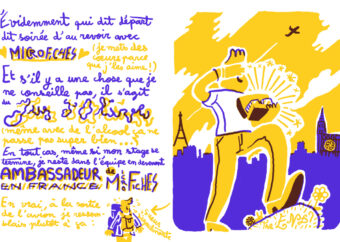 Évidemment qui dit départ
dit soirée d'au revoir avec
MICROFICHES (je mets des
cœurs parce
que j'les aime!)
Et s'il y a une chose que je
ne conseille pas, il s'agit
du Jus d'Olive
(même avec de l'alcool ça ne
passe pas super bien...)
En tout cas, même si mon stage se
termine, je reste dans l'équipe en devenant
AMBASSADEUR de
EN FRANCE
En vrai, à la sortie
de l'avion je ressem-
blais plutôt à ça :
The END